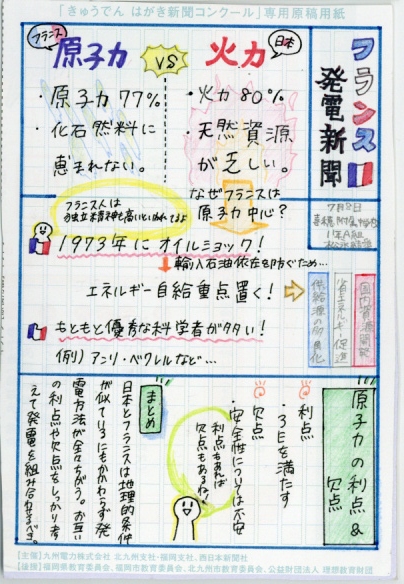 「きゅうでん はがき新聞コンクール」専用原稿用紙
フランス発電新聞
フランス
原子力
VS
火力
日本
・原子力77%
・化石燃料に
恵まれない。
・火力80%
・天然資源
が乏しい。
なぜフランスは
原子力中心?
7月8日
フランス人は
独立精神も高いといわれてるよ
1973年にオイルショック!
輸入石油依存を防ぐため…
エネルギー自給重点置く!
国内資源開発
省エネルギー促進
供給源の多角化
もともと優秀な科学者が多い!
例)アンリ・ベクレルなど…
原子力の利点&
欠点
利点
・3Eを満たす
欠点
・安全性については不安
利点もあれば
欠点もあるわ。
まとめ
日本とフランスは地理的条件
が似ているにもかかわらず発
電方法が全くちがう。お互い
の利点や欠点をしっかり考
えて発電を組み合わせるべき。
[主催]九州電力株式会社 北九州支社・福岡支社、西日本新聞社
[後援]福岡県教育委員会、福岡市教育委員会、北九州市教育委員会、公益財団法人 理想教育財団